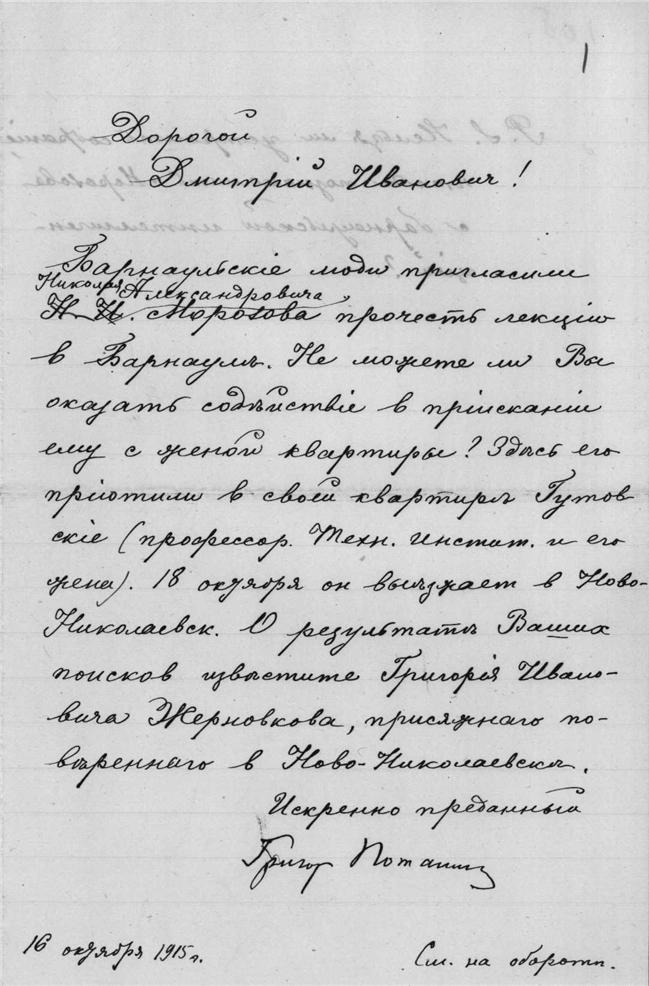 1
Дорогой
Дмитрій Ивановичъ!
Барнаульскіе люди пригласили
Николая Александровича
Н. И. Морозова прочесть лекцію
в Барнаулѣ. Не можете ли Вы
оказать содѣйствіе в пріисканіи
ему с женой квартиры? Здѣсь его
пріютили в своей квартирѣ Гутов-
скіе (профессор. Техн. Инстит. и его
жена). 18 октября он выѣзжает в Ново-
Николаевск. О результатѣ Ваших
поисков извѣстите Григорія Ивано-
вича Жерновкова, присяжнаго по-
вѣреннаго в Ново-Николаевскѣ.
Искренно преданный
Григор Потанин
16 октября 1915 г.
См. на оборотѣ.